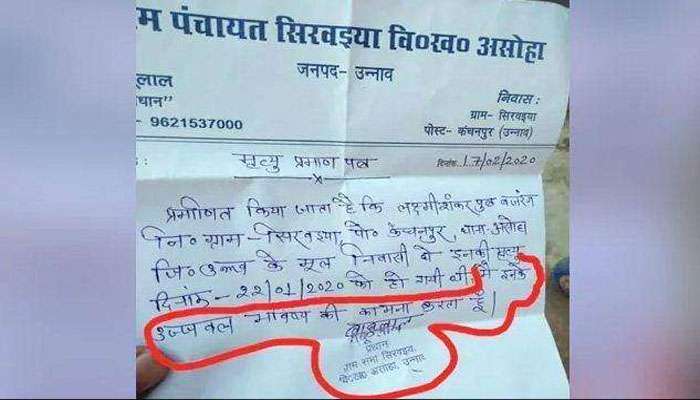 म पंचायत सिरवइया वि०ख० असोहा
जनपद- उन्नाव
लाल
धान”
- 9621537000
निवास :
ग्राम- सिरवइया
पोस्ट- कंचनपुर (उन्नाव)
मृत्यु प्रमाण पत्र
दिनांक 17/02/2020
प्रमाणित किया जाता है कि लक्ष्मीशंकर पुत्र बजरंग
नि० ग्राम- सिरवइया, पो० कंचनपुर, थाना असोहा
जि० उन्नाव के मूल निवासी थे इनकी मृत्यु
दिनांक- 22/01/2020 को हो गयी थी, मै इनके
उज्जवल भविष्य की कामना करता हूँ।
प्रधान
ग्राम सभा सिरवइया,
वि०ख० असोहा, उन्नाव